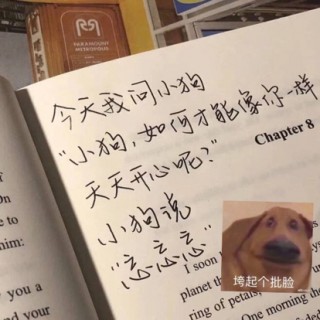 PARAMOUNT
METROPOLIS
今天我问小狗
"小狗,如何才能像你一样
Chapter 8
天天开心呢?"
小狗说
"忘忘忘"
垮起个批脸
of
On
e to
him:
you a
d your
I soon
planet th
ring of petals
One morning the